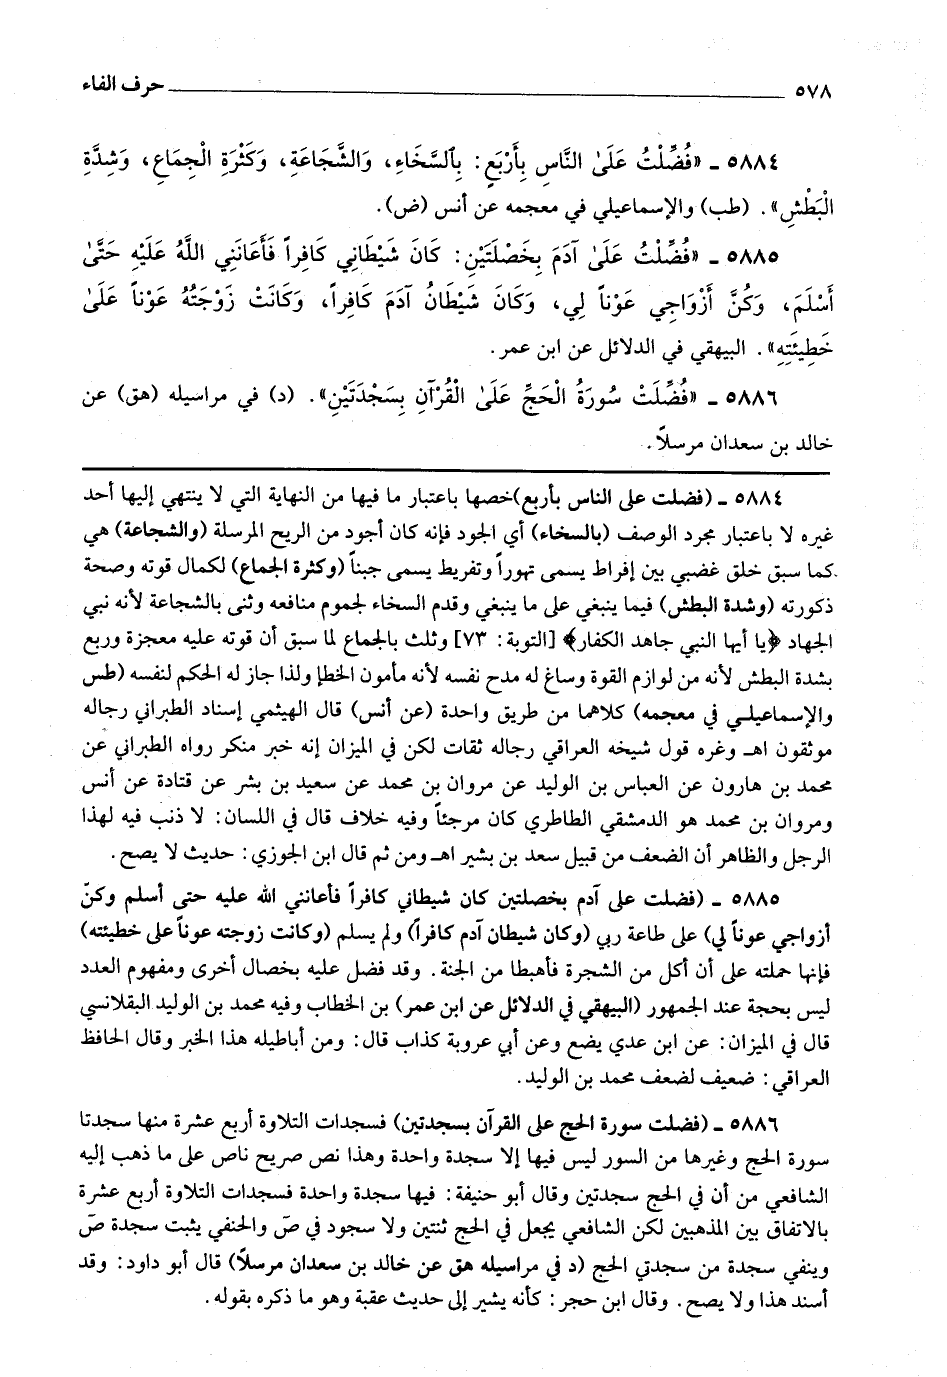 ٥٧٨ حرف الفاء
٥٨٨٤ ـ «فُضِّلْتُ عَلَىٰ النَّاسِ بِأَرْبَعٍ: بِٱلسَّخَاءِ، وَالشَّجَاعَةِ، وَكَثْرَةِ الْجِمَاعِ، وَشِدَّةِ
الْبَطْشِ». (طب) والإسماعيلي في معجمه عن أنس (ض).
٥٨٨٥ ـ «فُضِّلْتُ عَلَىٰ آدَمَ بِخَصْلَتَيْنِ: كَانَ شَيْطَانِي كَافِراً فَأَعَانَنِي اللَّهُ عَلَيْهِ حَتَّىٰ
أَسْلَمَ، وَكُنَّ أَزْوَاجِي عَوْناً لِي، وَكَانَ شَيْطَانُ آدَمَ كَافِراً، وَكَانَتْ زَوْجَتُهُ عَوْناً عَلَىٰ
خَطِيئَتِهِ». البيهقي في الدلائل عن ابن عمر.
٥٨٨٦ ـ «فُضِّلَتْ سُورَةُ الْحَجِّ عَلَىٰ الْقُرْآنِ بِسَجْدَتَيْنِ». (د) في مراسيله (هق) عن
خالد بن سعدان مرسلاً.
٥٨٨٤ ـ (فضلت على الناس بأربع)خصها باعتبار ما فيها من النهاية التي لا ينتهي إليها أحد
غيره لا باعتبار مجرد الوصف (بالسخاء) أي الجود فإنه كان أجود من الريح المرسلة (والشجاعة) هي
كما سبق خلق غضبي بين إفراط يسمى تهوراً وتفريط يسمى جبناً (وكثرة الجماع) لكمال قوته وصحة
ذكورته (وشدة البطش) فيما ينبغي على ما ينبغي وقدم السخاء لجموم منافعه وثنى بالشجاعة لأنه نبي
الجهاد ﴿يا أيها النبي جاهد الكفار﴾ [التوبة: ٧٣] وثلث بالجماع لما سبق أن قوته عليه معجزة وربع
بشدة البطش لأنه من لوازم القوة وساغ له مدح نفسه لأنه مأمون الخطإ ولذا جاز له الحكم لنفسه (طس
والإسماعيلي في معجمه) كلاهما من طريق واحدة (عن أنس) قال الهيثمي إسناد الطبراني رجاله
موثقون اهـ وغره قول شيخه العراقي رجاله ثقات لكن في الميزان إنه خبر منكر رواه الطبراني عن
محمد بن هارون عن العباس بن الوليد عن مروان بن محمد عن سعيد بن بشر عن قتادة عن أنس
ومروان بن محمد هو الدمشقي الطاطري كان مرجئاً وفيه خلاف قال في اللسان: لا ذنب فيه لهذا
الرجل والظاهر أن الضعف من قبيل سعد بن بشير اهـ ومن ثم قال ابن الجوزي: حديث لا يصح.
٥٨٨٥ ـ (فضلت على آدم بخصلتين كان شيطاني كافراً فأعانني الله عليه حتى أسلم وكنّ
أزواجي عوناً لي) على طاعة ربي (وكان شيطان آدم كافراً) ولم يسلم (وكانت زوجته عوناً على خطيئته)
فإنها حملته على أن أكل من الشجرة فأهبطا من الجنة. وقد فضل عليه بخصال أخرى ومفهوم العدد
ليس بحجة عند الجمهور (البيهقي في الدلائل عن ابن عمر) بن الخطاب وفيه محمد بن الوليد البقلانسي
قال في الميزان: عن ابن عدي يضع وعن أبي عروبة كذاب قال: ومن أباطيله هذا الخبر وقال الحافظ
العراقي: ضعيف لضعف محمد بن الوليد.
٥٨٨٦ ـ (فضلت سورة الحج على القرآن بسجدتين) فسجدات التلاوة أربع عشرة منها سجدتا
سورة الحج وغيرها من السور ليس فيها إلا سجدة واحدة وهذا نص صريح ناص على ما ذهب إليه
الشافعي من أن في الحج سجدتين وقال أبو حنيفة: فيها سجدة واحدة فسجدات التلاوة أربع عشرة
بالاتفاق بين المذهبين لكن الشافعي يجعل في الحج ثنتين ولا سجود في صَ والحنفي يثبت سجدة صَ
وينفي سجدة من سجدتي الحج (د في مراسيله هق عن خالد بن سعدان مرسلاً) قال أبو داود: وقد
أسند هذا ولا يصح. وقال ابن حجر: كأنه يشير إلى حديث عقبة وهو ما ذكره بقوله.